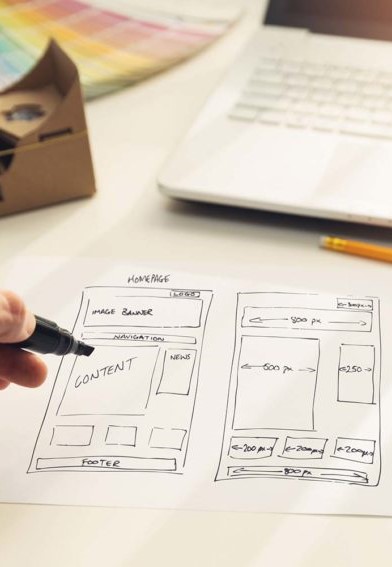 HOMEPAGE
LOGO
IMAGE BANNER
NAVIGATION
CONTENT
NEWS
FOOTER
800 px
600 px
250
200 px
200px
200px
800 px